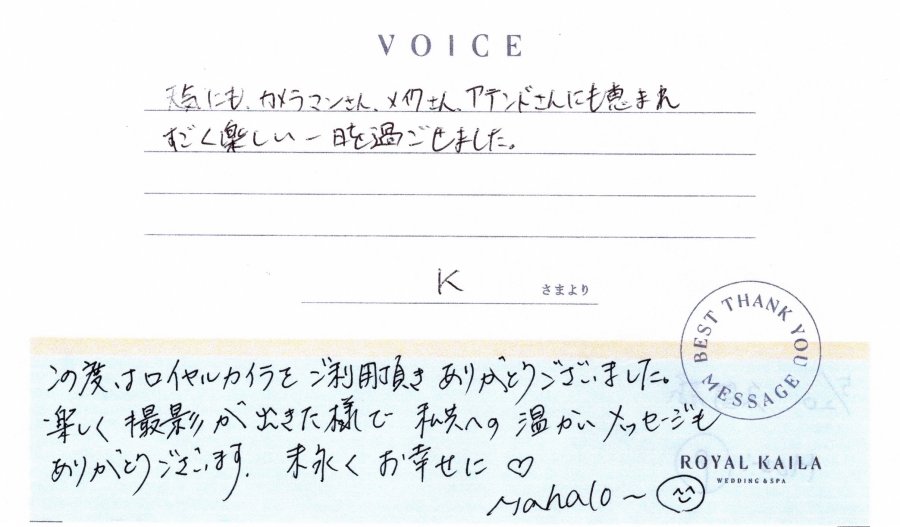 VOICE
天気にも、カメラマンさん、メイクさん、アテンドさんにも恵まれ
すごく楽しい一日を過ごせました。
K さまより
BEST THANK YOU MESSAGE
この度はロイヤルカイラをご利用頂きありがとうございました。
楽しく撮影が出きた様で私共への温かいメッセージも
ありがとうございます。末永くお幸せに♡
ROYAL KAILA
WEDDING & SPA
Mahalo~